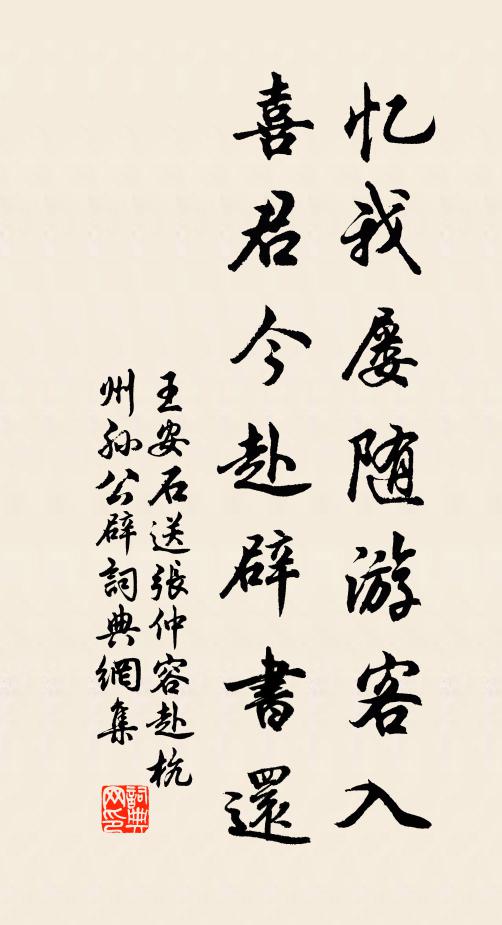 忆我屡随游客入
喜君今赴辟書還
王安石送張仲容赴杭
州孙公辟詞典網集
詞典网印